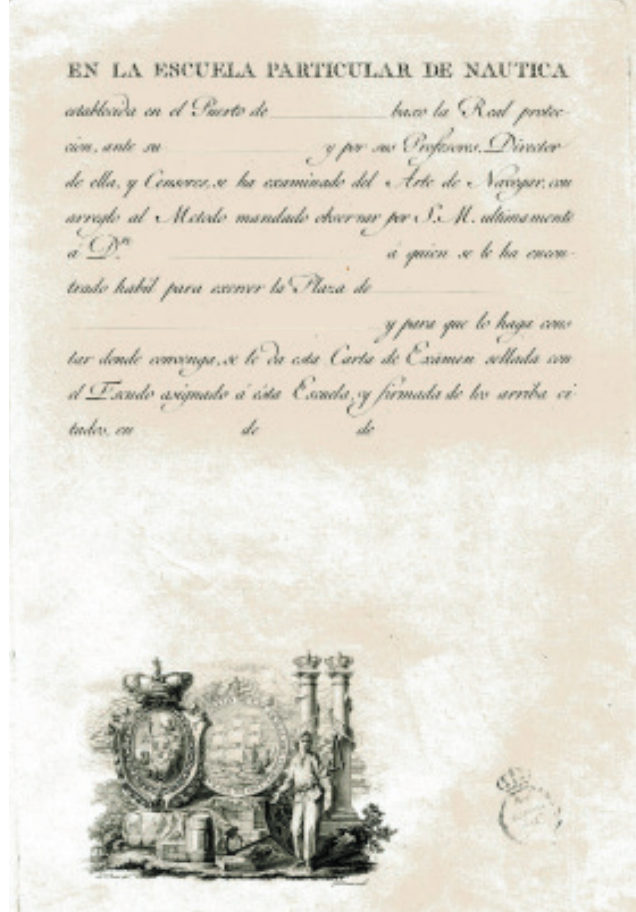 EN LA ESCUELA PARTICULAR DE NAUTICA
establecida en el Puerto de baxo la Real protec-
cion, ante su y por sus Profesores, Director
de ella, y Censores, se ha examinado del Arte de Navegar, con
arreglo al Metodo mandado observar por S. M. ultimamente
á D.ⁿ á quien se le ha encon-
trado habil para exercer la Plaza de
y para que lo haga cons
tar donde convenga, se le da esta Carta de Exámen sellada con
el Escudo asignado á ésta Escuela, y firmada de los arriba ci-
tados, en de de